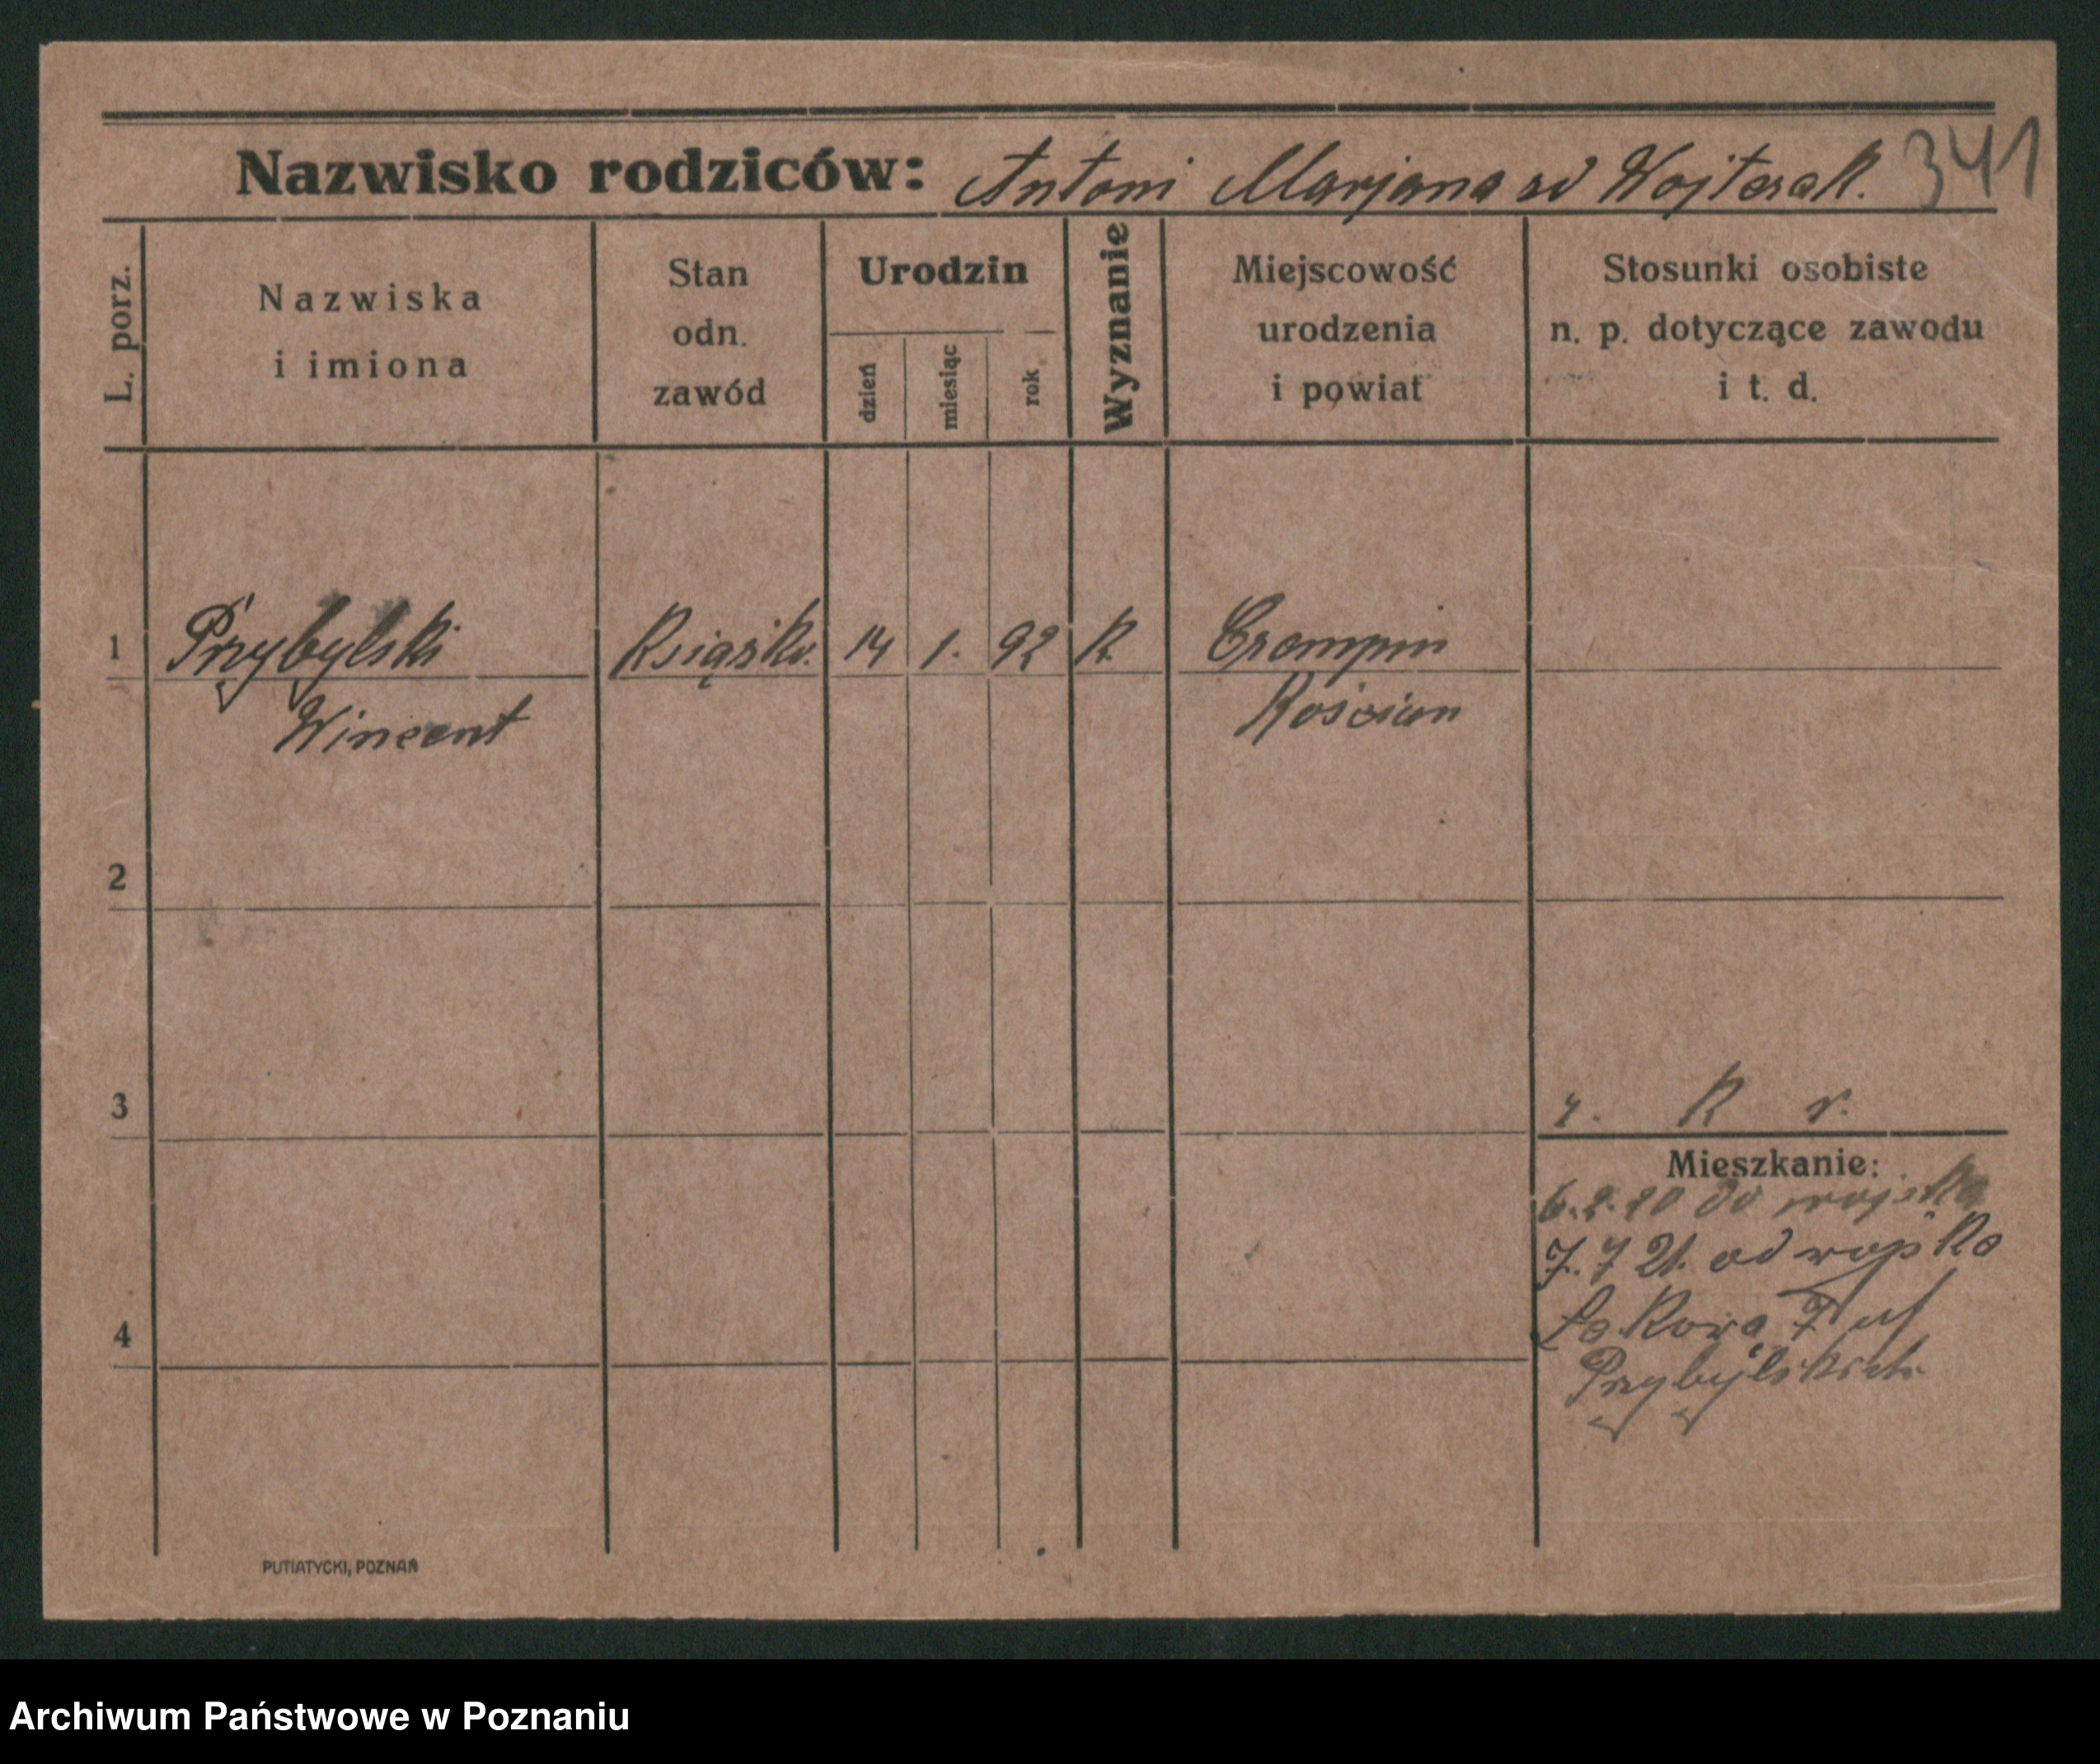 341
Nazwisko rodziców: Antoni Marjana zd Wojtczak.
L. porz.
Nazwiska
i imiona
Stan
odn.
zawód
Urodzin
dzień
miesiąc
rok
Wyznanie
Miejscowość
urodzenia
i powiat
Stosunki osobiste
n. p. dotyczące zawodu
i t. d.
1 Przybylski Książko. 14 1. 92 K. Czempin
Wincent Kościan
2
3
K r.
Mieszkanie:
do wojska
7. 7 21. od wojska
4
Przybylskich
PUTIATYCKI, POZNAŃ
Archiwum Państwowe w Poznaniu